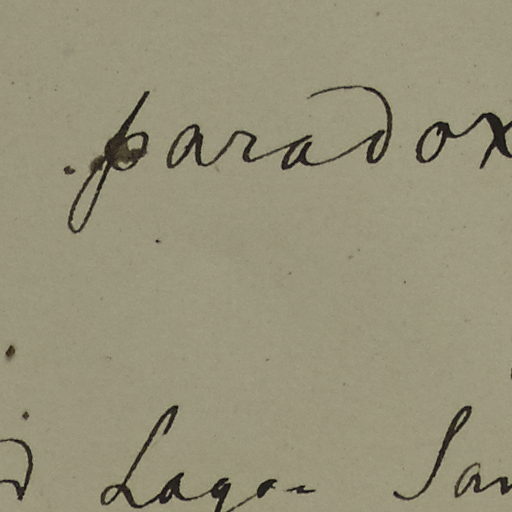 paradox
d Lagoa San